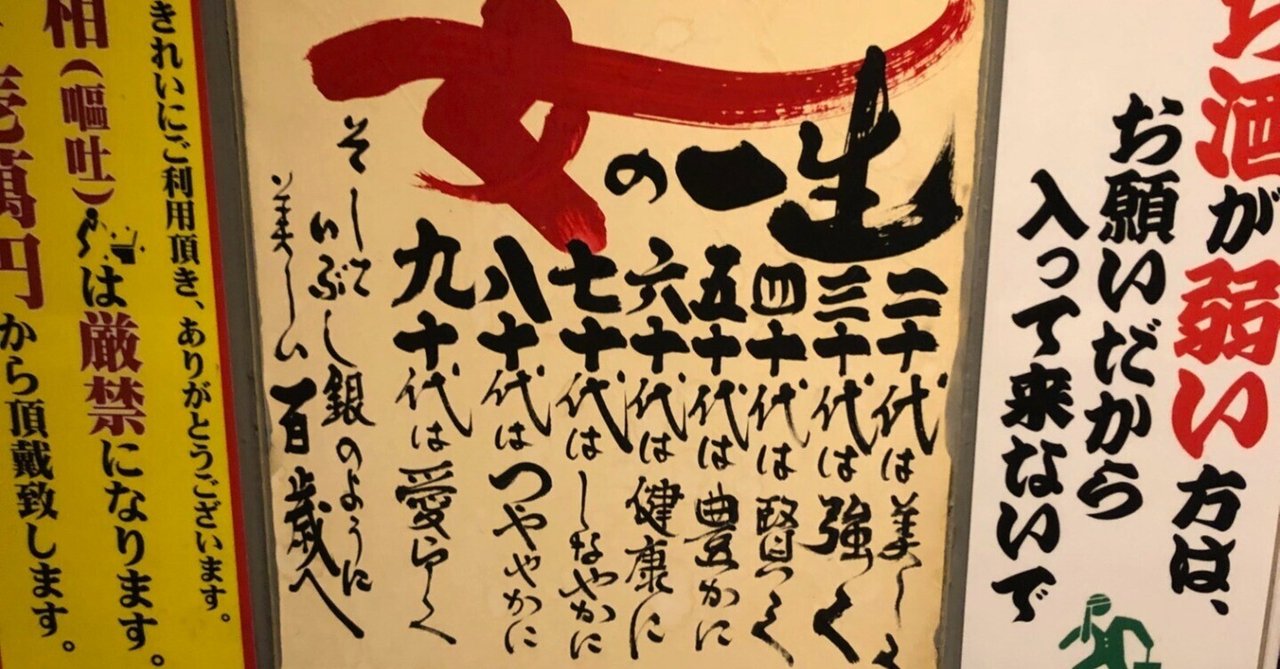 お酒が弱い方は、
お願いだから
入って来ないで
女の一生
二十代は美しく
三十代は強く
四十代は賢く
五十代は豊かに
六十代は健康に
七十代はしなやかに
八十代はつややかに
九十代は愛らしく
そして
いぶし銀のように
美しい百歳へ
きれいにご利用頂き、ありがとうございます。
相(嘔吐)は厳禁になります。
壱萬円から頂戴致します。